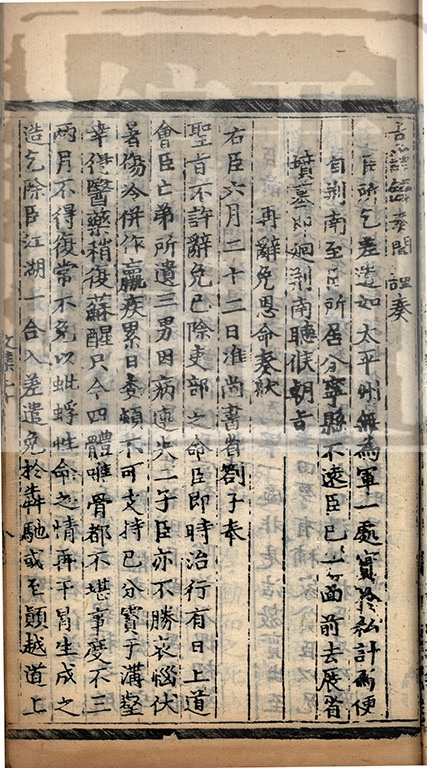 言謹錄奏聞謹奏
臣所乞差遣如太平州無為軍一處實於私計為便
自荆南至臣所居分寧縣不遠臣已一面前去展省
墳墓即廻荆南聽候朝旨
再辭免恩命奏狀
右臣六月二十二日准尚書省劄子奉
聖旨不許辭免已除吏部之命臣即時治行有日上道
會臣亡弟所遺三男因病連失二子臣亦不勝哀惱伏
暑傷冷併作羸疾累日委頓不可支持已分實于溝壑
幸得醫藥稍復蘇醒只今四體唯骨都不堪事度不三
兩月不得復常不免以蚍蜉性命之情再干冒生成之
造乞除臣江湖一合入差遣免於犇馳或至顛越道上
文集二十
八